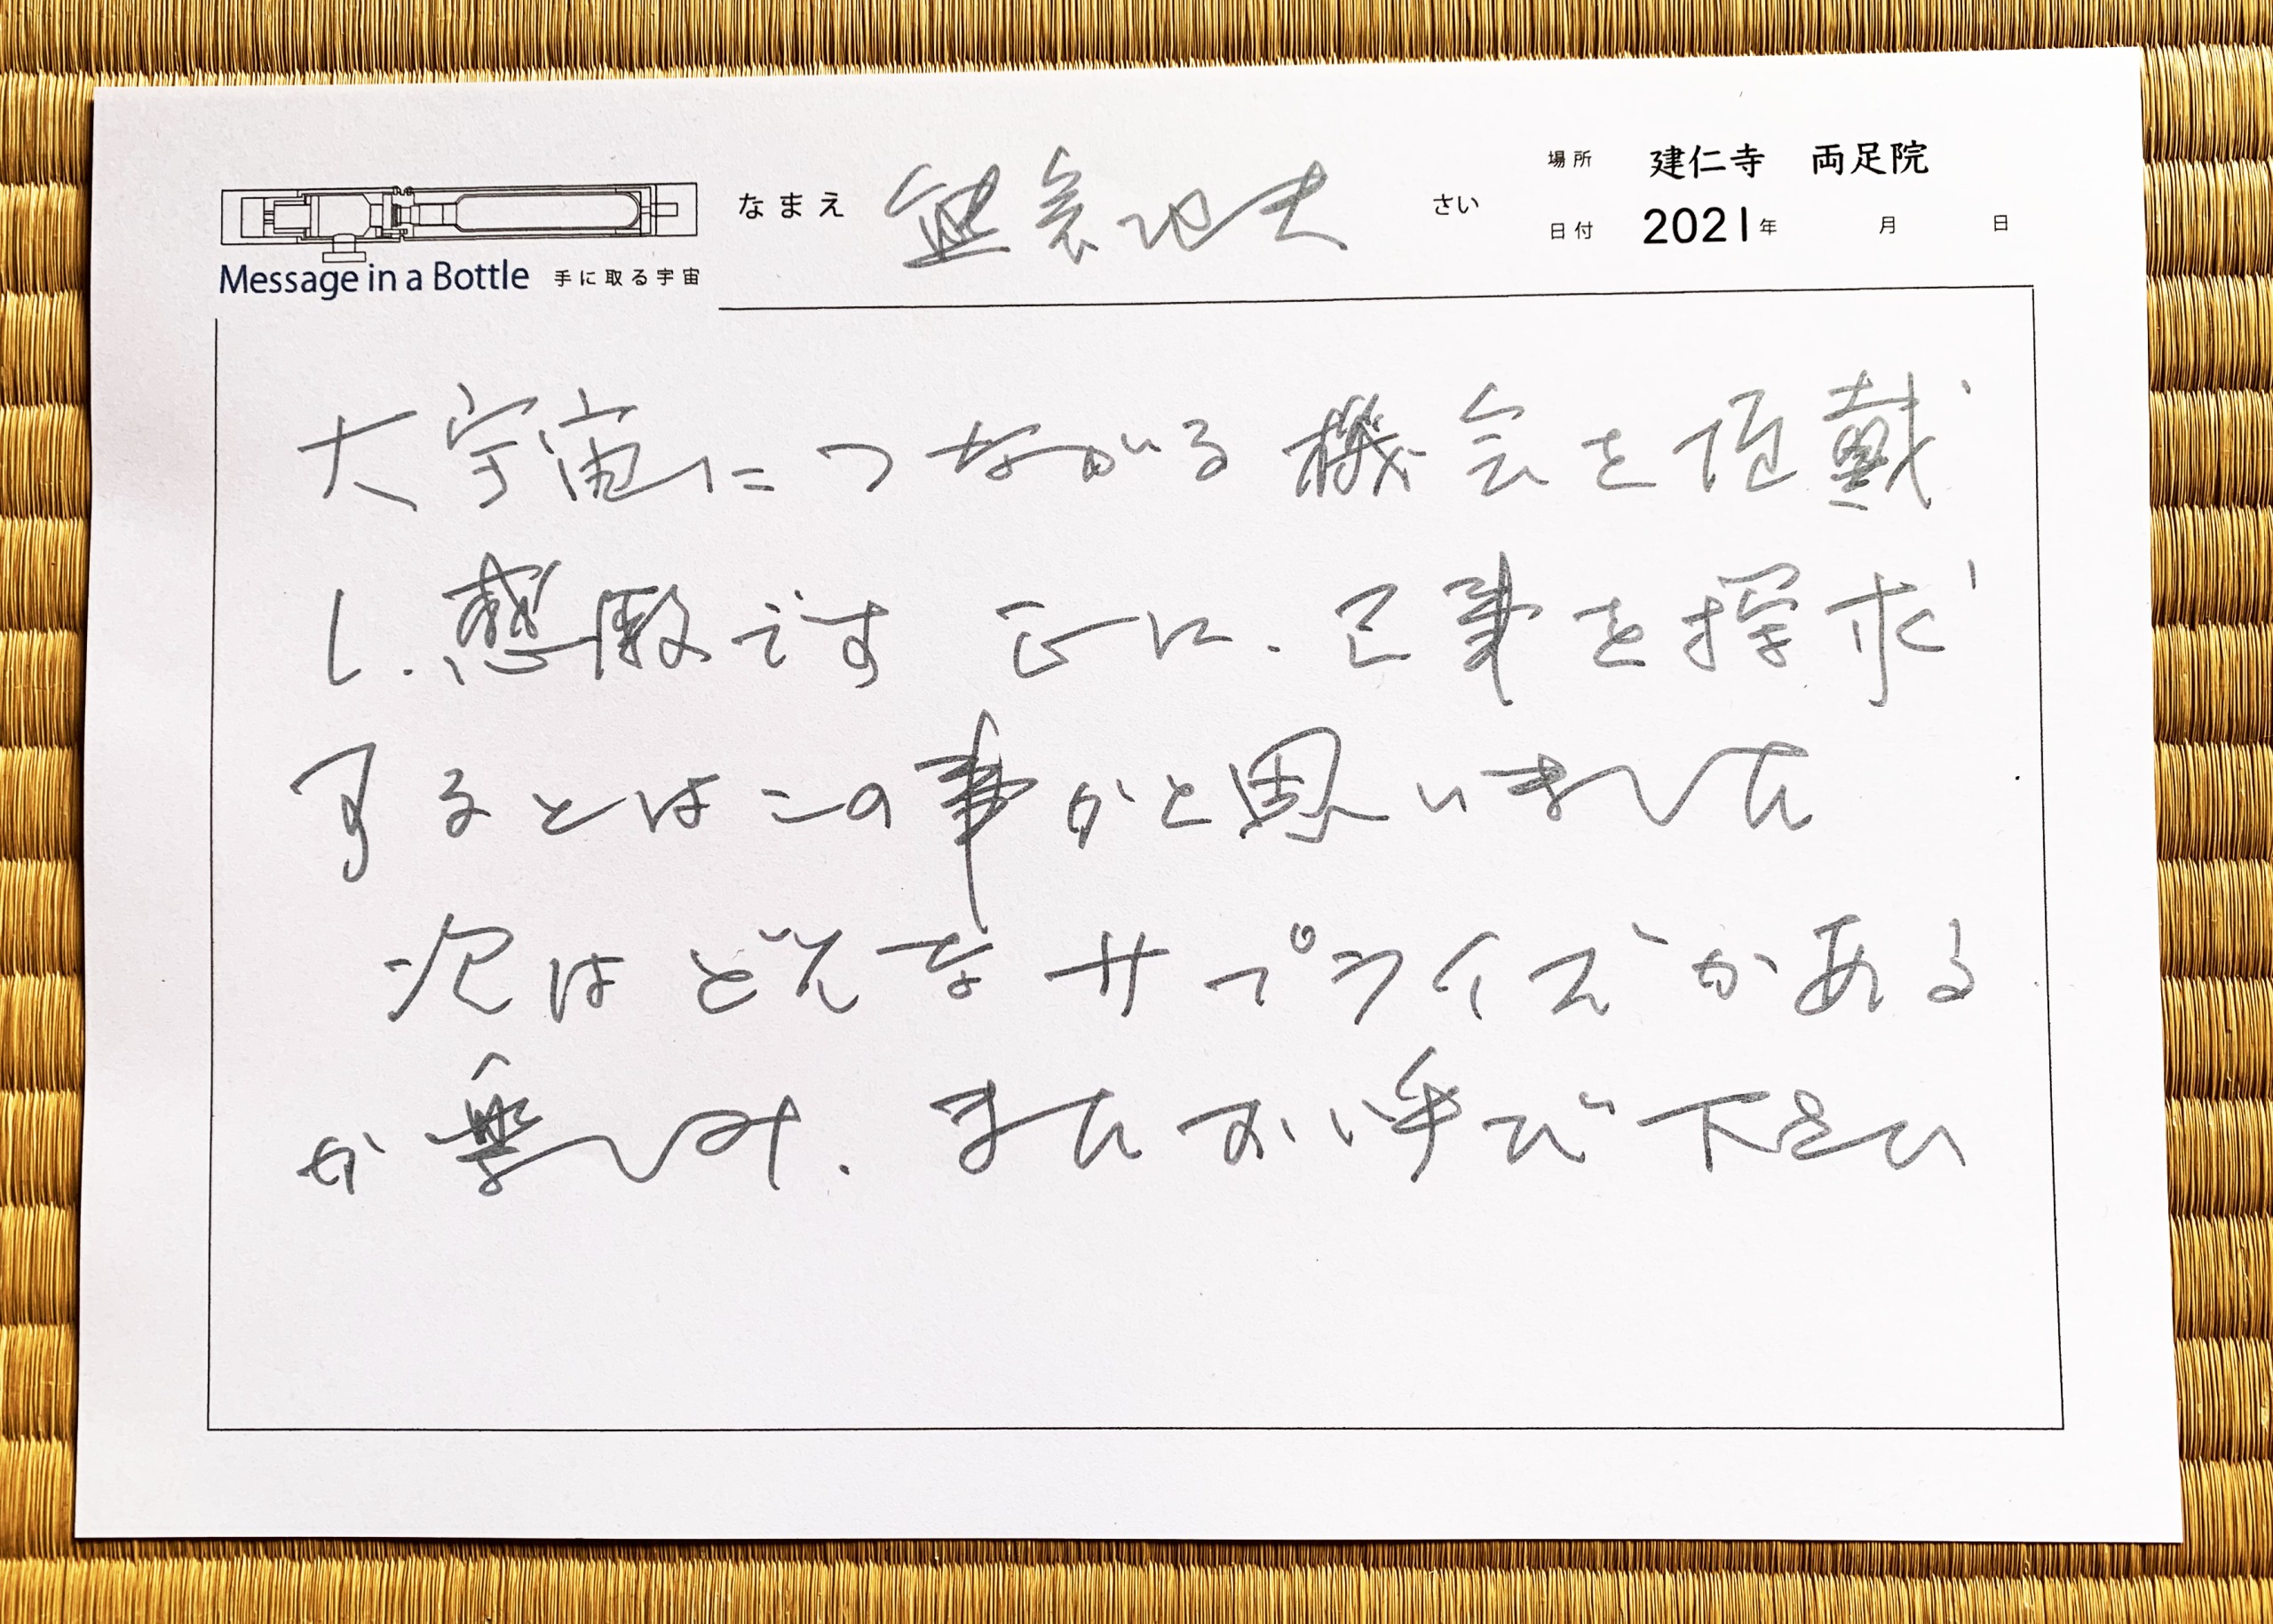 場所 建仁寺 両足院
なまえ さい
日付 2021年 月 日
Message in a Bottle 手に取る宇宙
大宇宙につながる機会を頂戴
し.感激です 正に.己事を探求
するとはこの事かと思いました
次はどんなサプライズがある
か楽しみ.またお呼び下さい